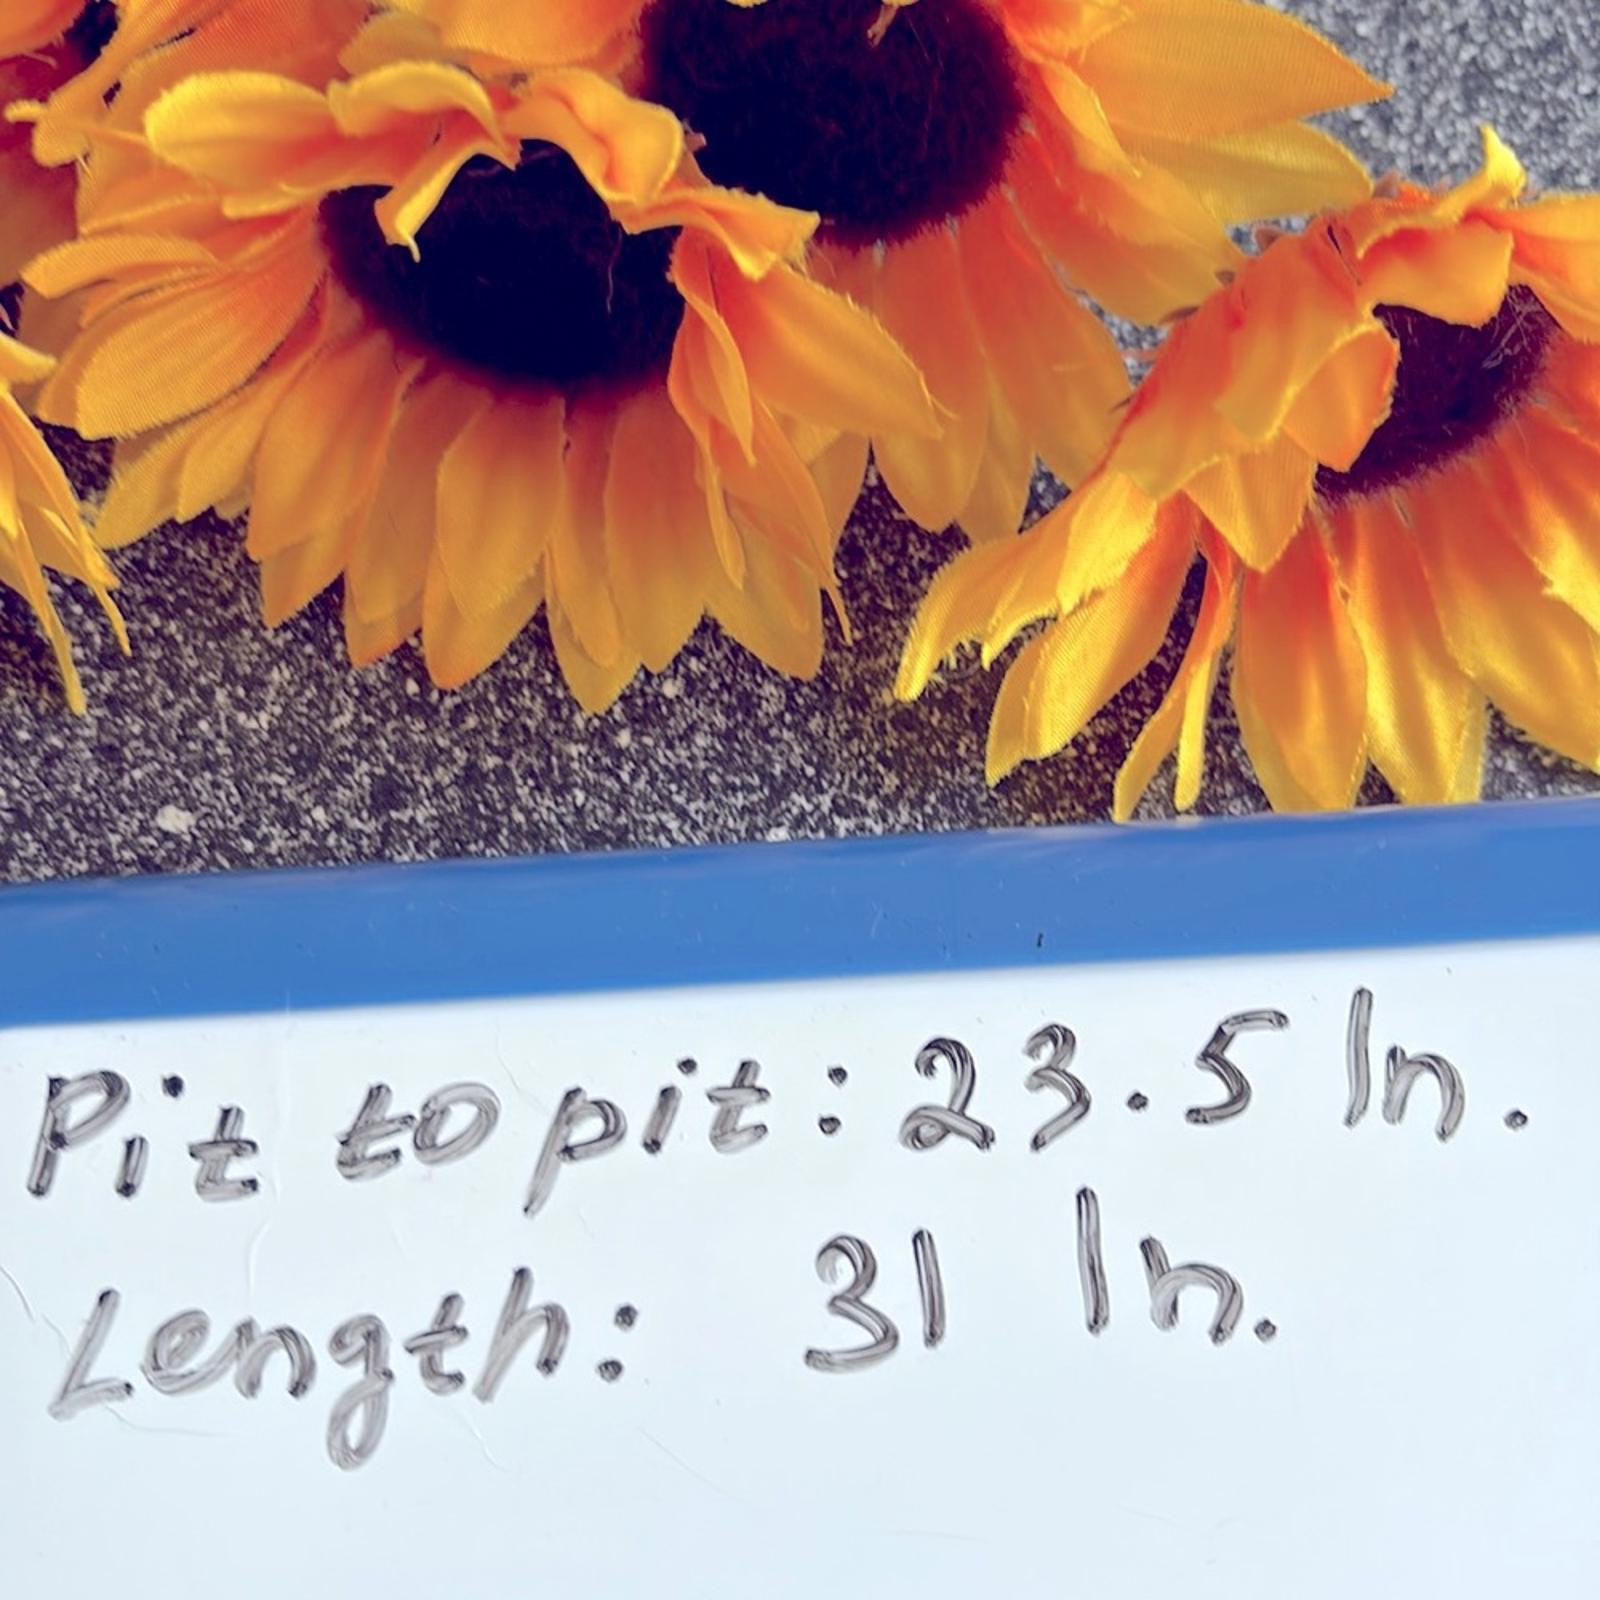 Pit to pit: 23.5 In.
Length: 31 In.